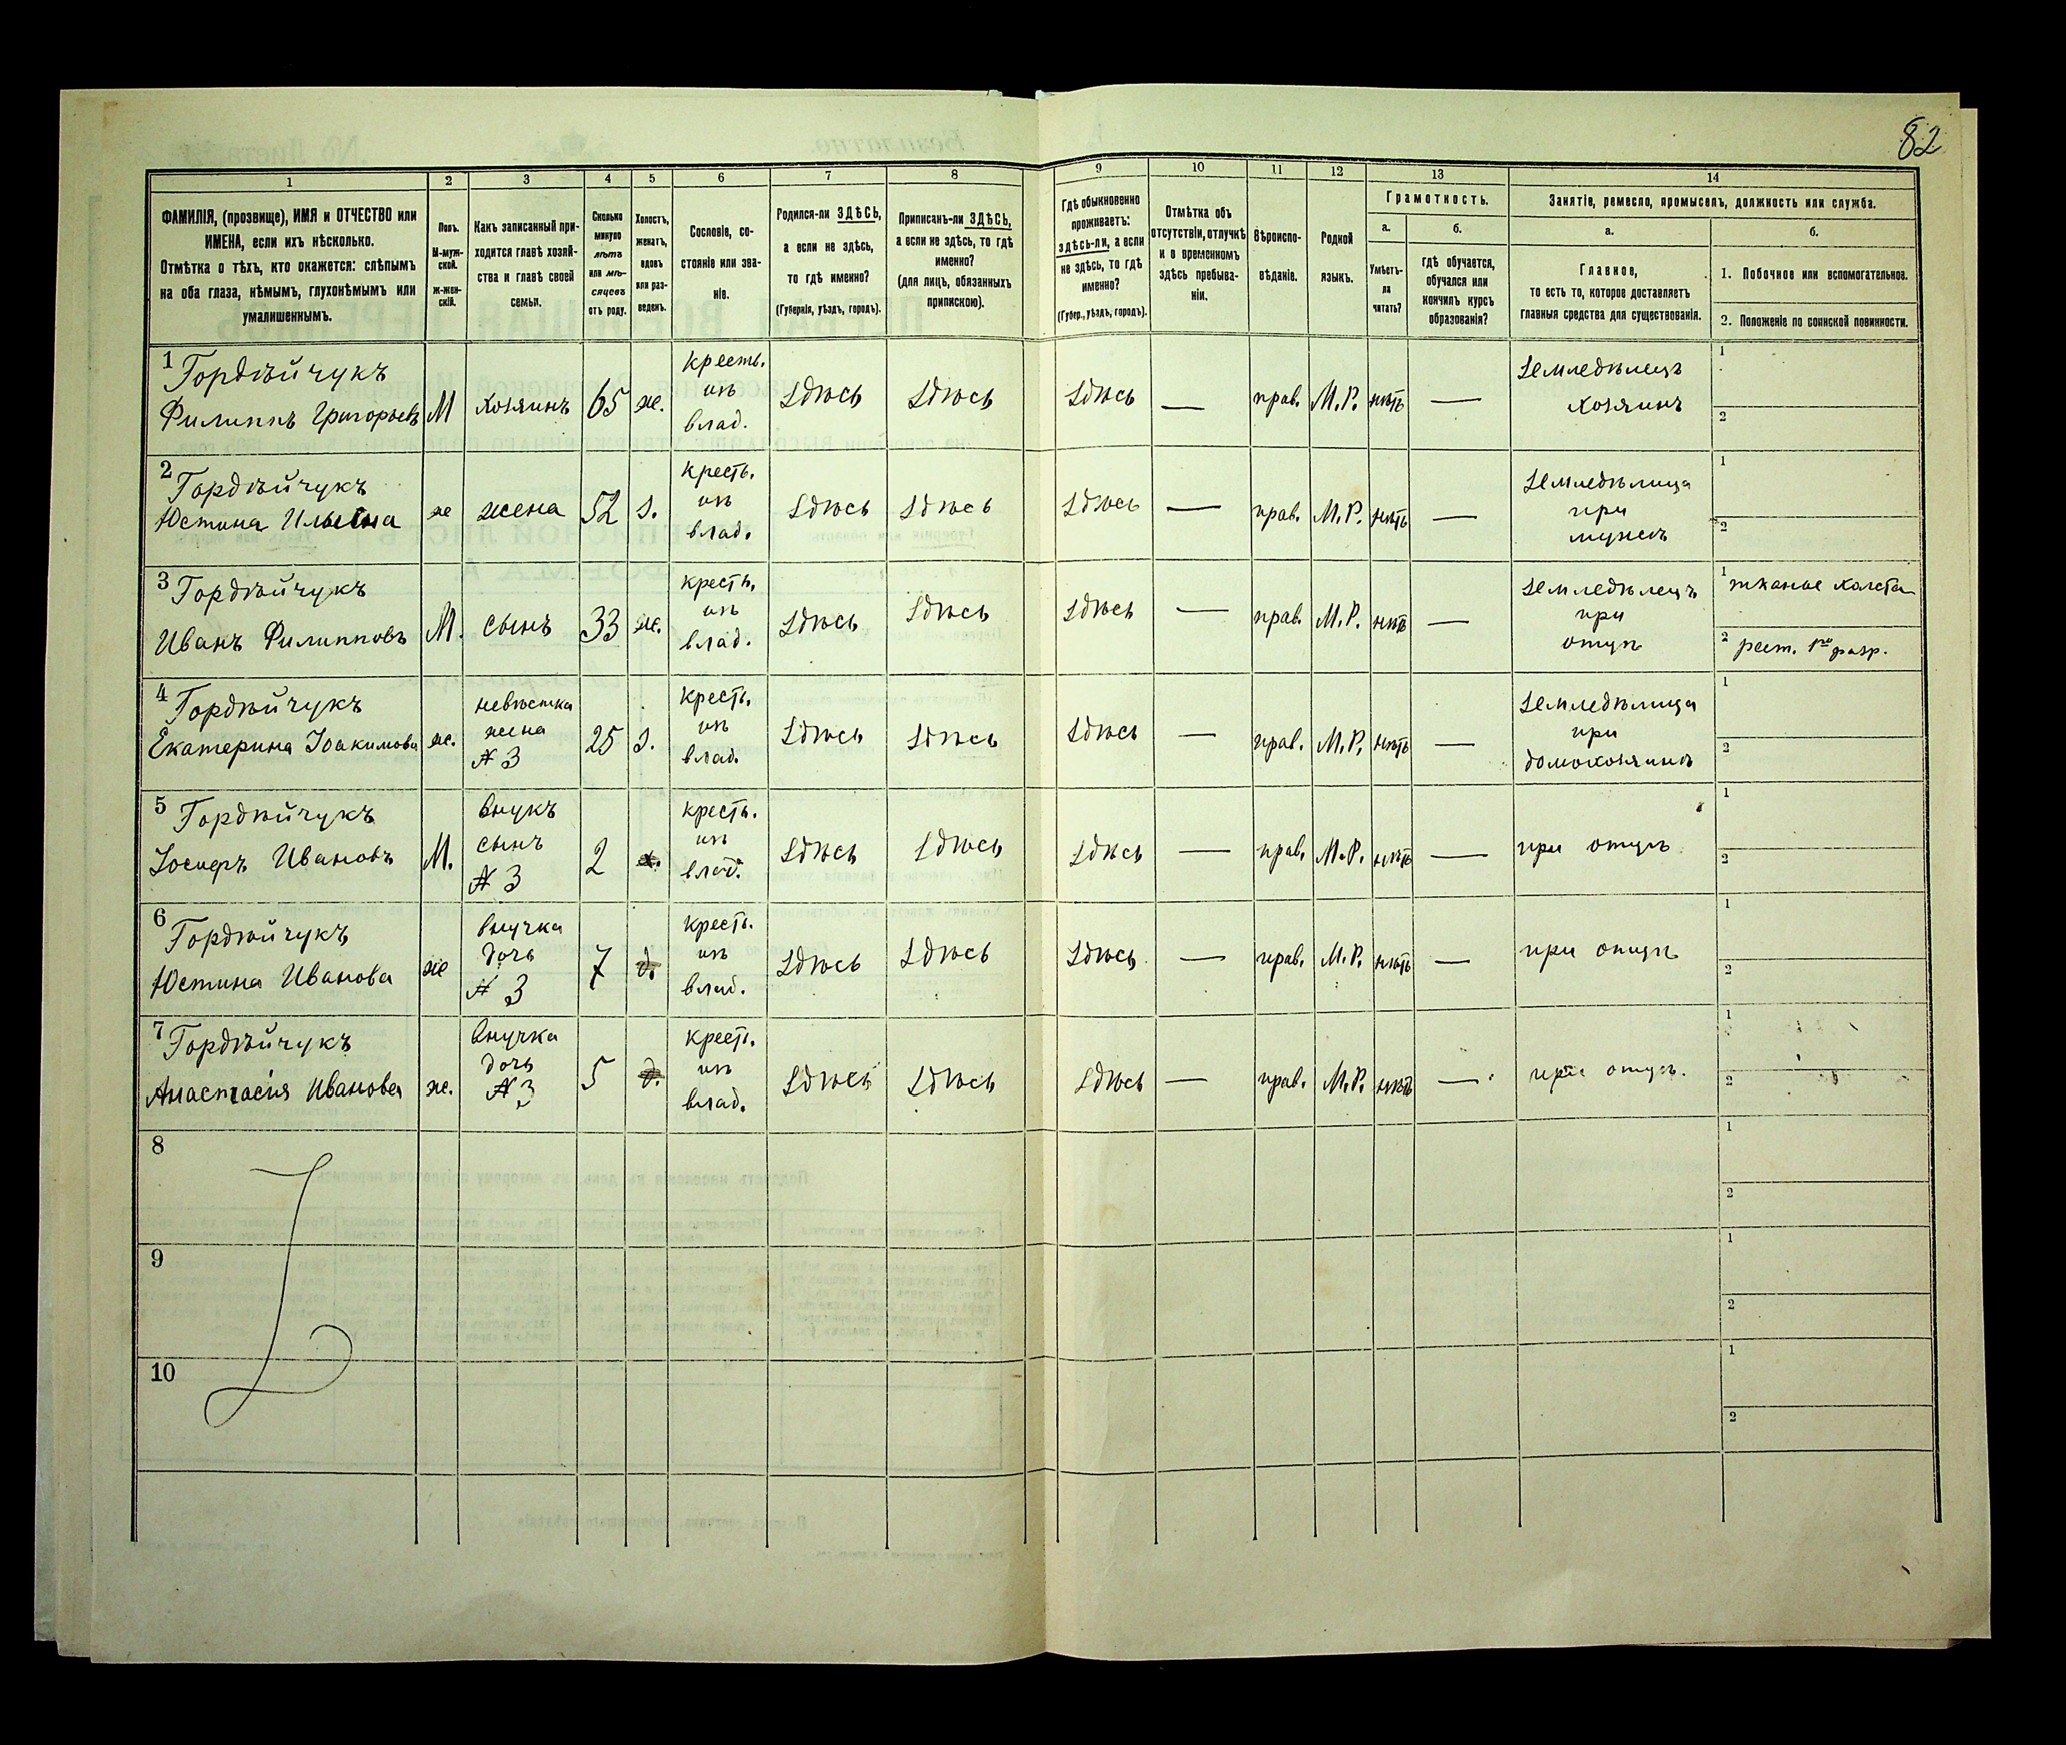 82
1
2
3
4
5
6
7
8
9
10
11
12
13
14
ФАМИЛІЯ, (прозвище), ИМЯ и ОТЧЕСТВО или
ИМЕНА, если ихъ нѣсколько.
Отмѣтка о тѣхъ, кто окажется: слѣпымъ
на оба глаза, нѣмымъ, глухонѣмымъ или
умалишеннымъ.
Полъ.
М-муж-
ской.
Ж-жен-
скій.
Какъ записанный при-
ходится главѣ хозяй-
ства и главѣ своей
семьи.
Сколько
минуло
лѣтъ
или мѣ-
сяцевъ
отъ роду.
Холостъ,
женатъ,
вдовъ
или раз-
веденъ.
Сословіе, со-
стояніе или зва-
ніе.
Родился-ли ЗДѢСЬ,
а если не здѣсь,
то гдѣ именно?
(Губернія, уѣздъ, городъ).
Приписанъ-ли ЗДѢСЬ,
а если не здѣсь, то гдѣ
именно?
(для лицъ, обязанныхъ
припискою).
Гдѣ обыкновенно
проживаетъ:
здѣсь-ли, а если
не здѣсь, то гдѣ
именно?
(Губер., уѣздъ, городъ).
Отмѣтка объ
отсутствіи, отлучкѣ
и о временномъ
здѣсь пребыва-
ніи.
Вѣроиспо-
вѣданіе.
Родной
языкъ.
Грамотность.
а.
Умѣетъ-
ли
читать?
б.
гдѣ обучается,
обучался или
кончилъ курсъ
образованія?
Занятіе, ремесло, промыселъ, должность или служба.
а.
Главное,
то есть то, которое доставляетъ
главныя средства для существованія.
б.
1. Побочное или вспомогательное.
2. Положеніе по воинской повинности.
1 Гордѣйчукъ
Филиппъ Григорьевъ
М
хозяинъ
65
ж.
кресть.
изъ
влад.
здѣсь
здѣсь
здѣсь
—
прав.
М.Р.
нѣтъ
—
земледѣлецъ
хозяинъ
1
2
2 Гордѣйчукъ
Юстина Ильина
ж
жена
52
з.
кресть.
изъ
влад.
здѣсь
здѣсь
здѣсь
—
прав.
М.Р.
нѣтъ
—
земледѣлица
при
мужѣ
1
2
3 Гордѣйчукъ
Иванъ Филипповъ
М.
сынъ
33
ж.
кресть.
изъ
влад.
здѣсь
здѣсь
здѣсь
—
прав.
М.Р.
нѣтъ
—
земледѣлецъ
при
отцѣ
1 тканье холста
2 рест. 1го разр.
4 Гордѣйчукъ
Екатерина Іоакимова
ж.
невѣстка
жена
№ 3
25
з.
кресть.
изъ
влад.
здѣсь
здѣсь
здѣсь
—
прав.
М.Р.
нѣтъ
—
земледѣлица
при
домохозяинѣ
1
2
5 Гордѣйчукъ
Іосифъ Ивановъ
М.
внукъ
сынъ
№ 3
2
х.
кресть.
изъ
влад.
здѣсь
здѣсь
здѣсь
—
прав.
М.Р.
нѣтъ
—
при отцѣ
1
2
6 Гордѣйчукъ
Юстина Иванова
ж
внучка
дочь
№ 3
7
д.
кресть.
изъ
влад.
здѣсь
здѣсь
здѣсь
—
прав.
М.Р.
нѣтъ
—
при отцѣ
1
2
7 Гордѣйчукъ
Анастасія Иванова
ж.
внучка
дочь
№ 3
5
д.
кресть.
изъ
влад.
здѣсь
здѣсь
здѣсь
—
прав.
М.Р.
нѣтъ
—
при отцѣ.
1
2
8
1
2
9
1
2
10
1
2